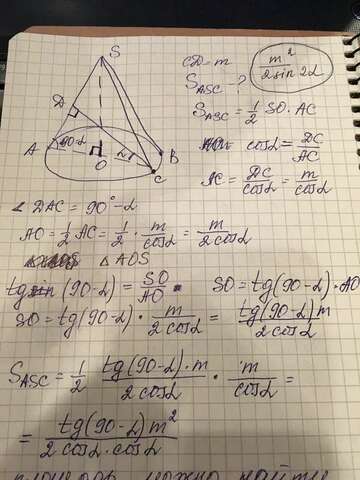 S
D
A
90-α
O
α
B
C
CD = m
m² / 2sin2α
S_ASC - ?
S_ASC = 1/2 SO · AC
cosα = DC/AC
AC = DC/cosα = m/cosα
∠ DAC = 90° - α
AO = 1/2 AC = 1/2 · m/cosα = m/2cosα
△ AOS
tg (90-α) = SO/AO
SO = tg(90-α) · AO
SO = tg(90-α) · m/2cosα = tg(90-α)m/2cosα
S_ASC = 1/2 · tg(90-α)·m/2cosα · m/cosα =
= tg(90-α)m²/2cosα·cosα
можно найти